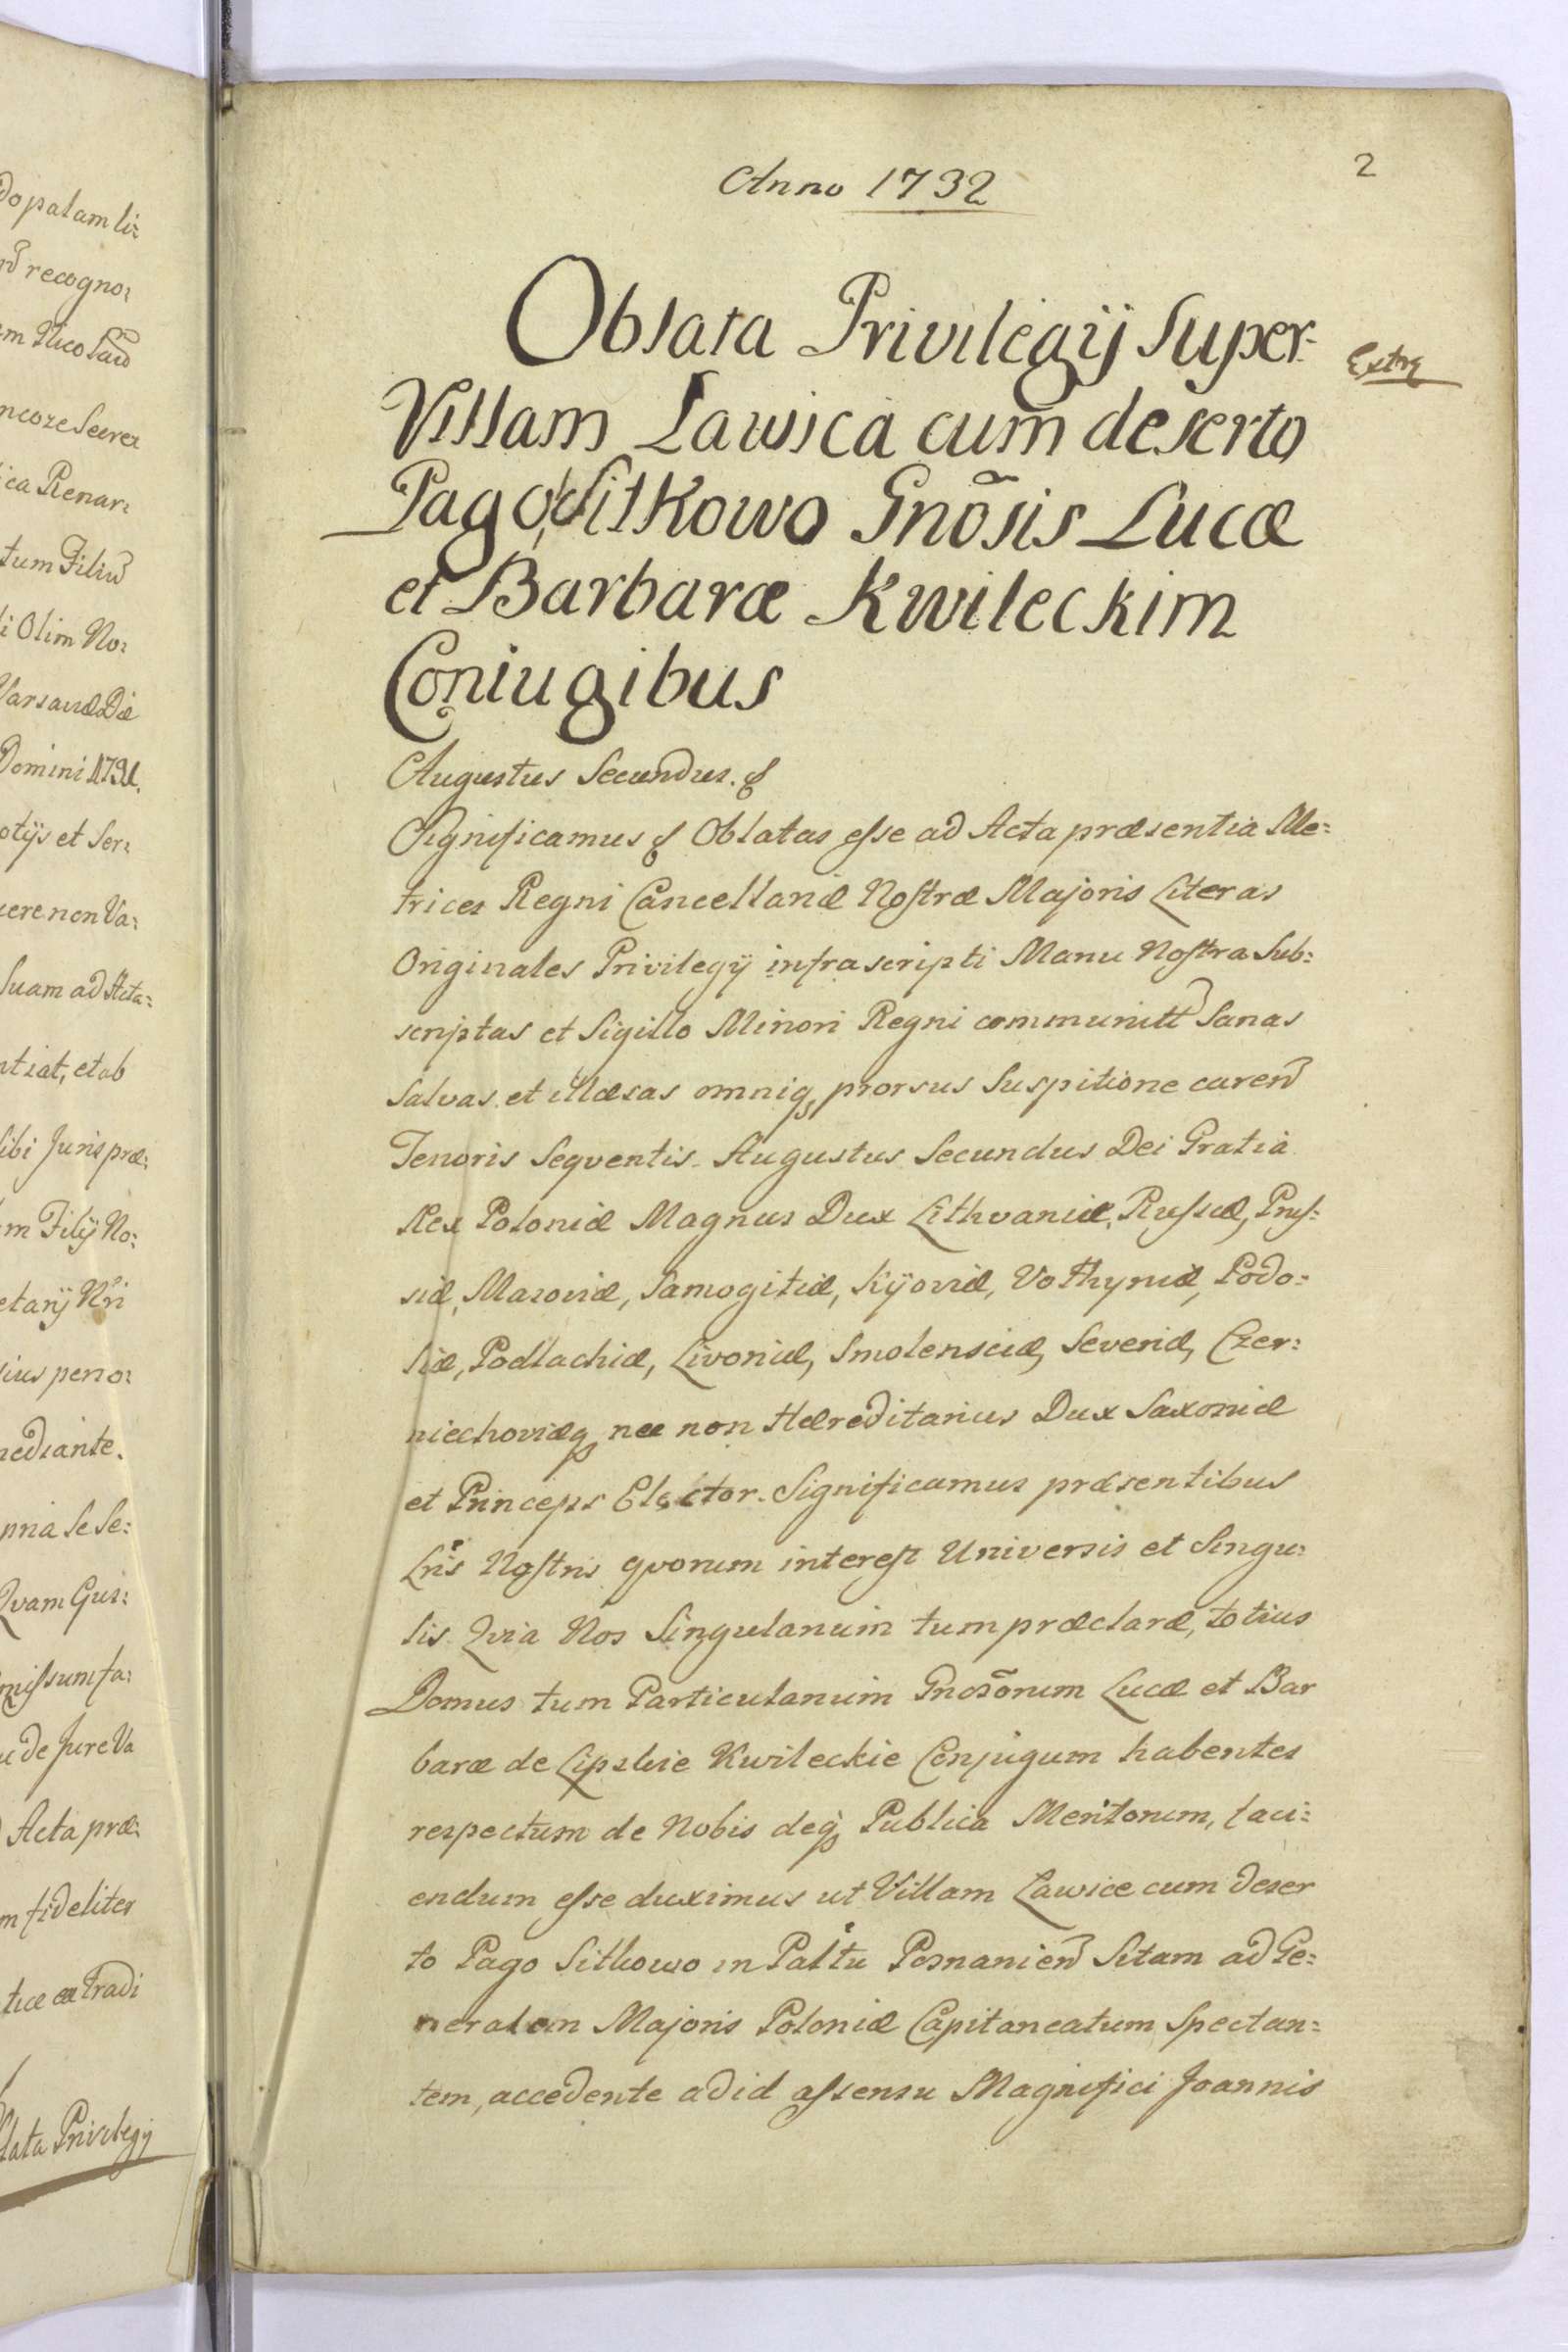 do patam li:
recogno:
ncoze Secre:
ica Renar:
tum Filiū
i Olim No:
Varsaviæ Die
Domini 1732.
otijs et Ser:
cere non Va:
Suam ad Acta:
ntiat, et ob
sibi Juris præ:
m Filij No:
etarij Nri
ius perno:
mediante.
pria se Se:
Qvam Gus:
missum fa:
de Jure Va
Acta præ:
m fideliter
extradi
lata Privilegij
Anno 1732
2
Oblata Privilegij Super
Extra
Villam Lawica cum deserto
Pago Sitkowo Gnõsis Lucæ
et Barbaræ Kwileckim
Coniugibus
Augustus Secundus. &
Significamus & Oblatas esse ad Acta præsentia Me:
trices Regni Cancellariæ Nostræ Majoris Literas
Originales Privilegij infrascripti Manu Nostra Sub:
scriptas et Sigillo Minori Regni communitt Sanas
Salvas et illæsas omniq prorsus Suspitione caren
Tenoris Seqventis. Augustus Secundus Dei Gratia
Rex Poloniæ Magnus Dux Lithvaniæ, Russiæ, Prus:
siæ, Mazoviæ, Samogitiæ, Kijoviæ, Vothyniæ, Podo:
liæ, Podlachiæ, Livoniæ, Smolensciæ, Severiæ, Czer:
niechoviæq nec non Hæreditarius Dux Saxoniæ
et Princeps Elector. Significamus præsentibus
Lris Nostris qvorum interest Universis et Singu:
lis. Qvia Nos Singularium tum præclaræ, totius
Domus tum Particularium Gnosõrum Lucæ et Bar
baræ de Lipskie Kwileckie Conjugum habentes
respectum de Nobis deq Publica Meritorum, faci:
endum esse duximus ut Villam Lawice cum deser
to Pago Sitkowo in Palttu Posnanien Sitam ad Ge:
neralem Majoris Poloniæ Capitaneatum Spectan:
tem, accedente ad id assensu Magnifici Joannis